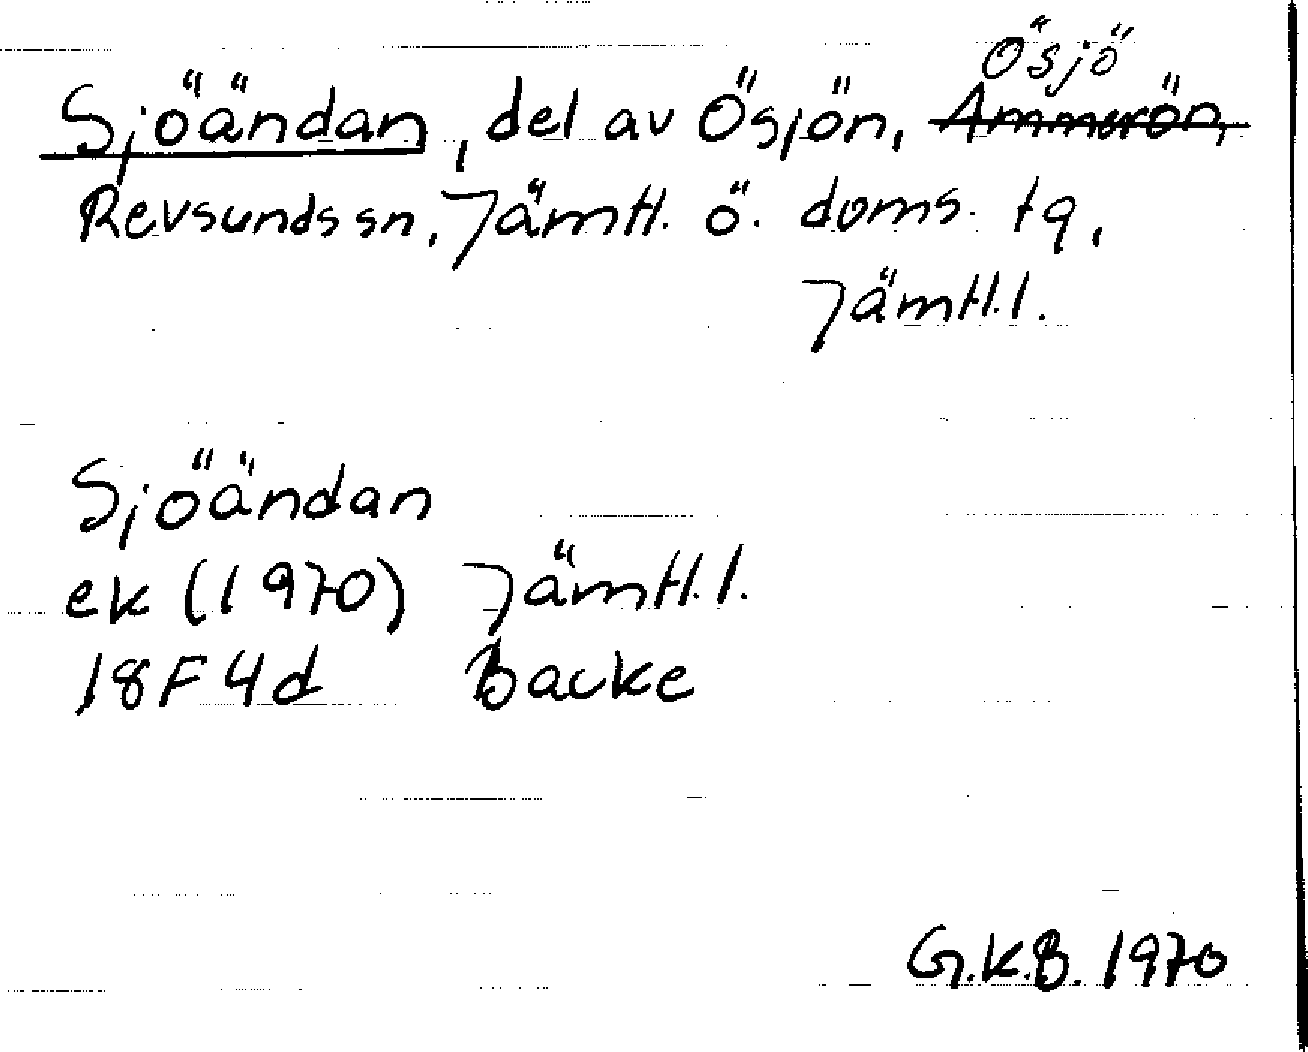 Ösjö
Sjöändan, del av Ösjön, Ammerön,
Revsunds sn, Jämtl. ö. doms. tg,
Jämtl.l.
Sjöändan
ek (1970) Jämtl.l.
18F4d Backe
G.K.B. 1970